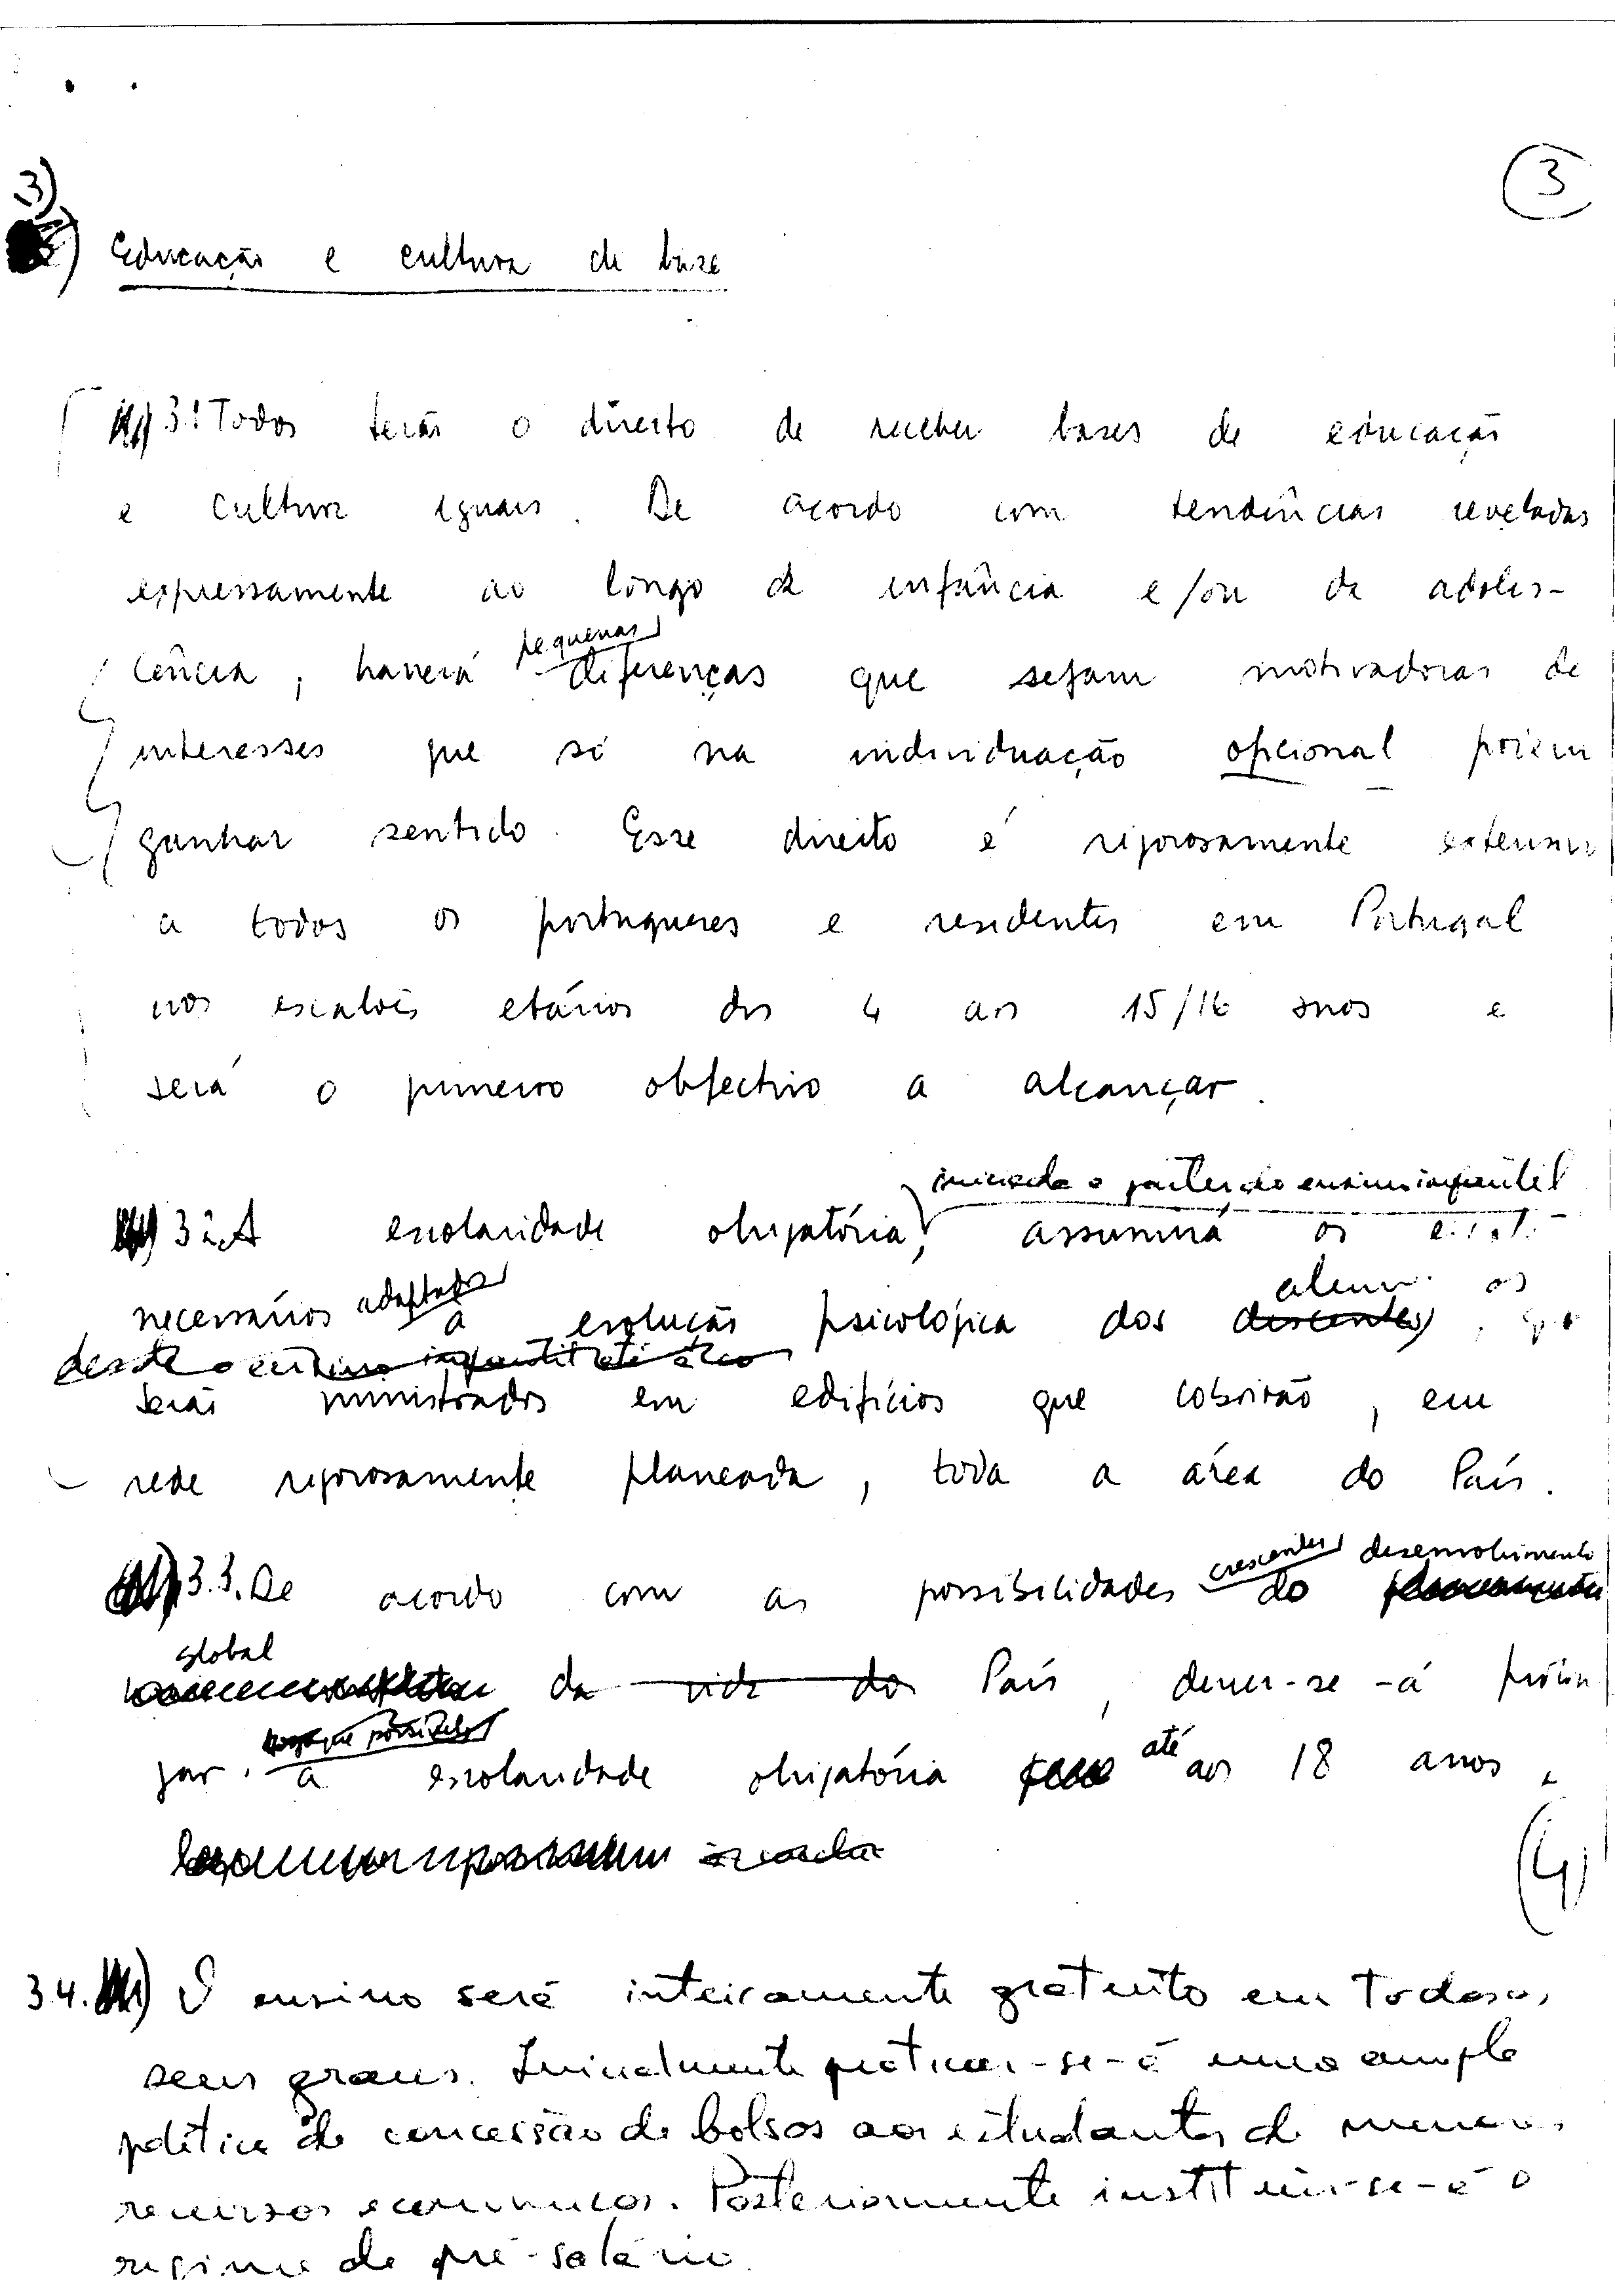 3
3)
Educação e cultura de base
3.1 Todos terão o direito de receber bases de educação
e cultura iguais. De acordo com tendências reveladas
expressamente ao longo da infância e/ou da adoles-
cência, haverá pequenas diferenças que sejam motivadoras de
interesses que só na individuação opcional podem
ganhar sentido. Esse direito é rigorosamente extensivo
a todos os portugueses e residentes em Portugal
nos escalões etários dos 4 aos 15/16 anos e
será o primeiro objectivo a alcançar.
iniciada a partir do ensino infantil
3.2. A escolaridade obrigatória, assumirá os
necessários adaptados à evolução psicológica dos alunos
desde o ensino infantil até
serão ministrados em edifícios que cobrirão, em
rede rigorosamente planeada, toda a área do País.
3.3. De acordo com as possibilidades crescentes do desenvolvimento
global da vida do País, dever-se-á prolon
gar, logo que possível a escolaridade obrigatória até aos 18 anos.
(4)
3.4. O ensino será inteiramente gratuito em todos os
seus graus. Inicialmente praticar-se-á uma ampla
política de concessão de bolsas aos estudantes de menores
recursos económicos. Posteriormente instituir-se-á o
regime de pré-salário.